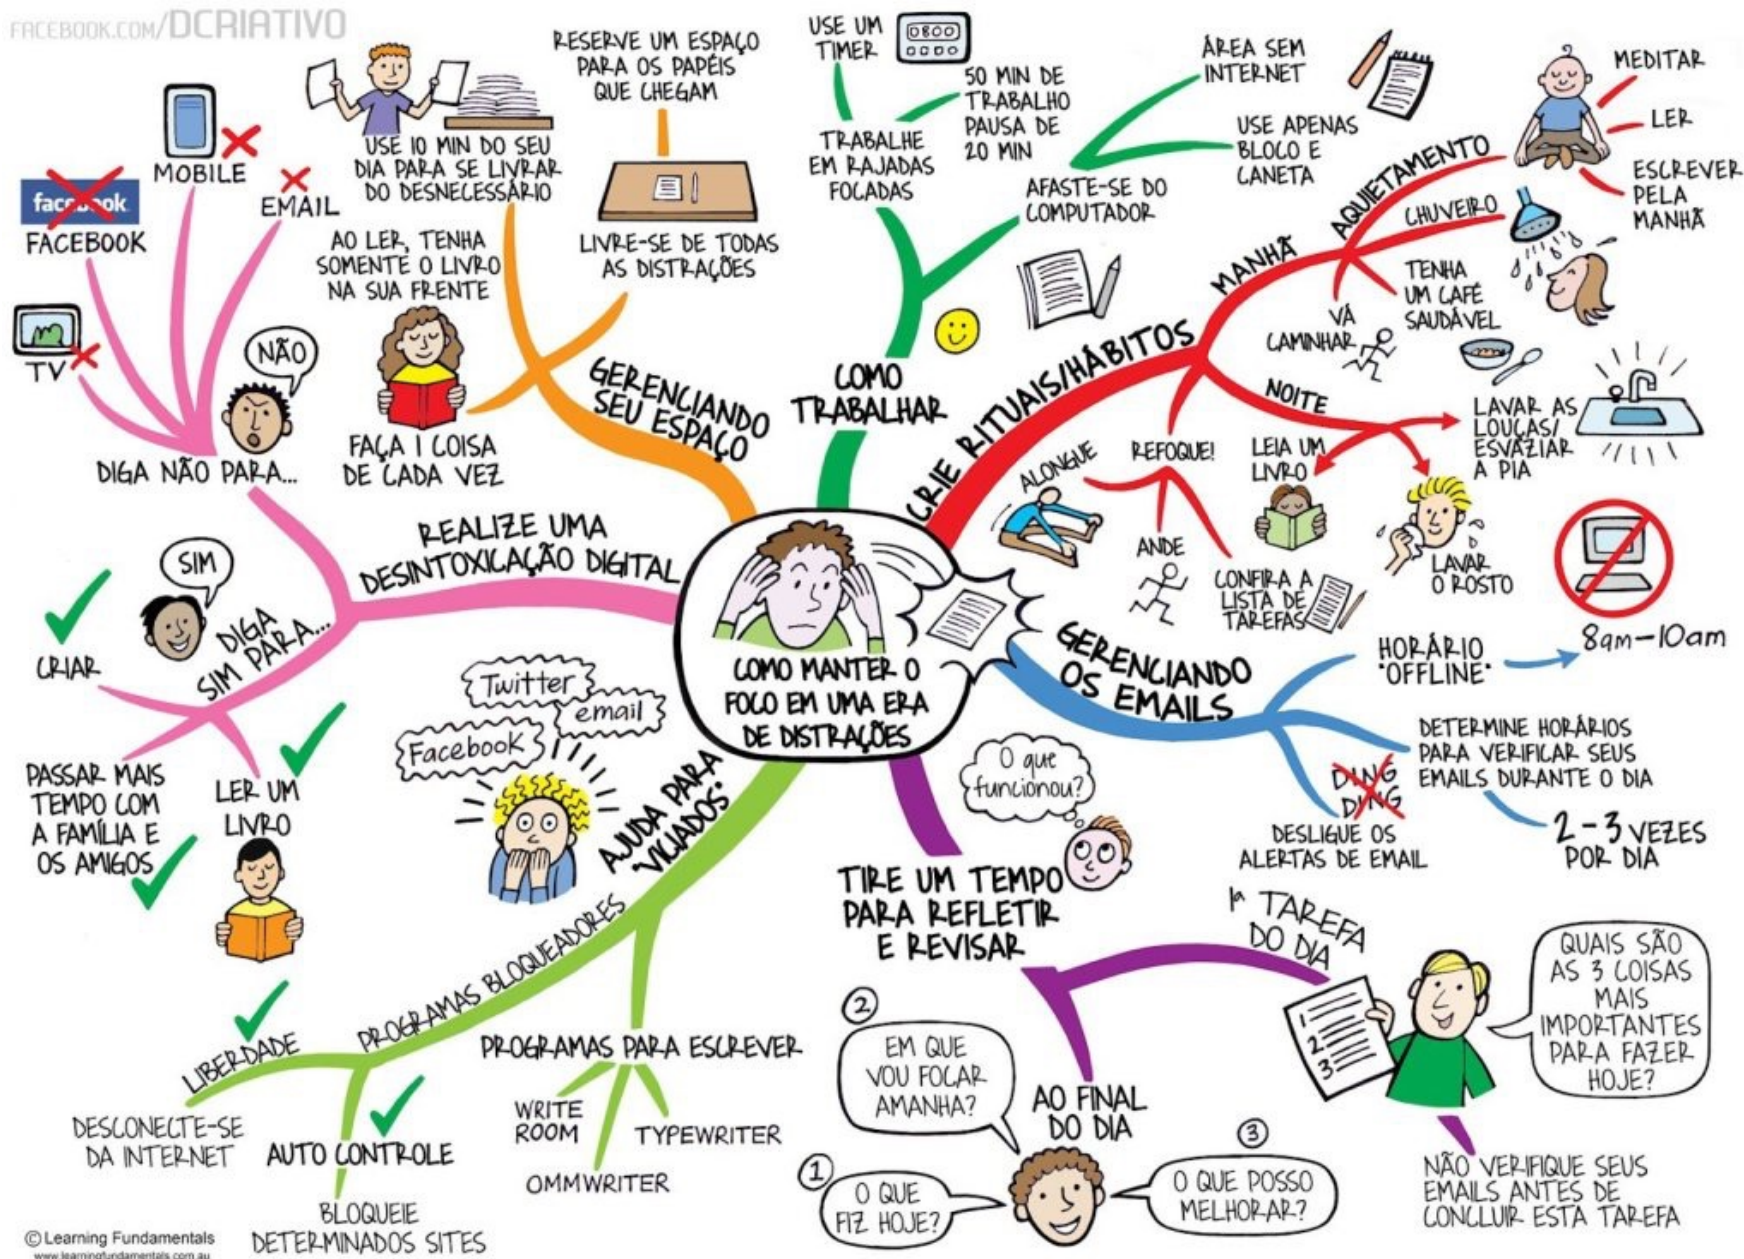 FACEBOOK.COM/DCRIATIVO
COMO MANTER O
FOCO EM UMA ERA
DE DISTRAÇÕES
REALIZE UMA
DESINTOXICAÇÃO DIGITAL
DIGA NÃO PARA...
NÃO
TV
facebook
FACEBOOK
MOBILE
EMAIL
DIGA
SIM PARA...
SIM
CRIAR
PASSAR MAIS
TEMPO COM
A FAMÍLIA E
OS AMIGOS
LER UM
LIVRO
GERENCIANDO
SEU ESPAÇO
USE 10 MIN DO SEU
DIA PARA SE LIVRAR
DO DESNECESSÁRIO
RESERVE UM ESPAÇO
PARA OS PAPÉIS
QUE CHEGAM
LIVRE-SE DE TODAS
AS DISTRAÇÕES
AO LER, TENHA
SOMENTE O LIVRO
NA SUA FRENTE
FAÇA 1 COISA
DE CADA VEZ
COMO
TRABALHAR
TRABALHE
EM RAJADAS
FOCADAS
USE UM
TIMER
0800
50 MIN DE
TRABALHO
PAUSA DE
20 MIN
AFASTE-SE DO
COMPUTADOR
ÁREA SEM
INTERNET
USE APENAS
BLOCO E
CANETA
CRIE RITUAIS/HÁBITOS
MANHÃ
AQUIETAMENTO
MEDITAR
LER
ESCREVER
PELA
MANHÃ
CHUVEIRO
TENHA
UM CAFÉ
SAUDÁVEL
VÁ
CAMINHAR
NOITE
LAVAR AS
LOUÇAS/
ESVAZIAR
A PIA
LEIA UM
LIVRO
LAVAR
O ROSTO
REFOQUE!
ALONGUE
ANDE
CONFIRA A
LISTA DE
TAREFAS
GERENCIANDO
OS EMAILS
HORÁRIO
"OFFLINE"
8am-10am
DETERMINE HORÁRIOS
PARA VERIFICAR SEUS
EMAILS DURANTE O DIA
2-3 VEZES
POR DIA
DING
DING
DESLIGUE OS
ALERTAS DE EMAIL
TIRE UM TEMPO
PARA REFLETIR
E REVISAR
O que
funcionou?
1ª TAREFA
DO DIA
1
2
3
QUAIS SÃO
AS 3 COISAS
MAIS
IMPORTANTES
PARA FAZER
HOJE?
NÃO VERIFIQUE SEUS
EMAILS ANTES DE
CONCLUIR ESTA TAREFA
AO FINAL
DO DIA
1
O QUE
FIZ HOJE?
2
EM QUE
VOU FOCAR
AMANHA?
3
O QUE POSSO
MELHORAR?
AJUDA PARA
"VICIADOS"
Twitter
email
Facebook
PROGRAMAS BLOQUEADORES
LIBERDADE
DESCONECTE-SE
DA INTERNET
AUTO CONTROLE
BLOQUEIE
DETERMINADOS SITES
PROGRAMAS PARA ESCREVER
WRITE
ROOM
OMMWRITER
TYPEWRITER
© Learning Fundamentals
www.learningfundamentals.com.au